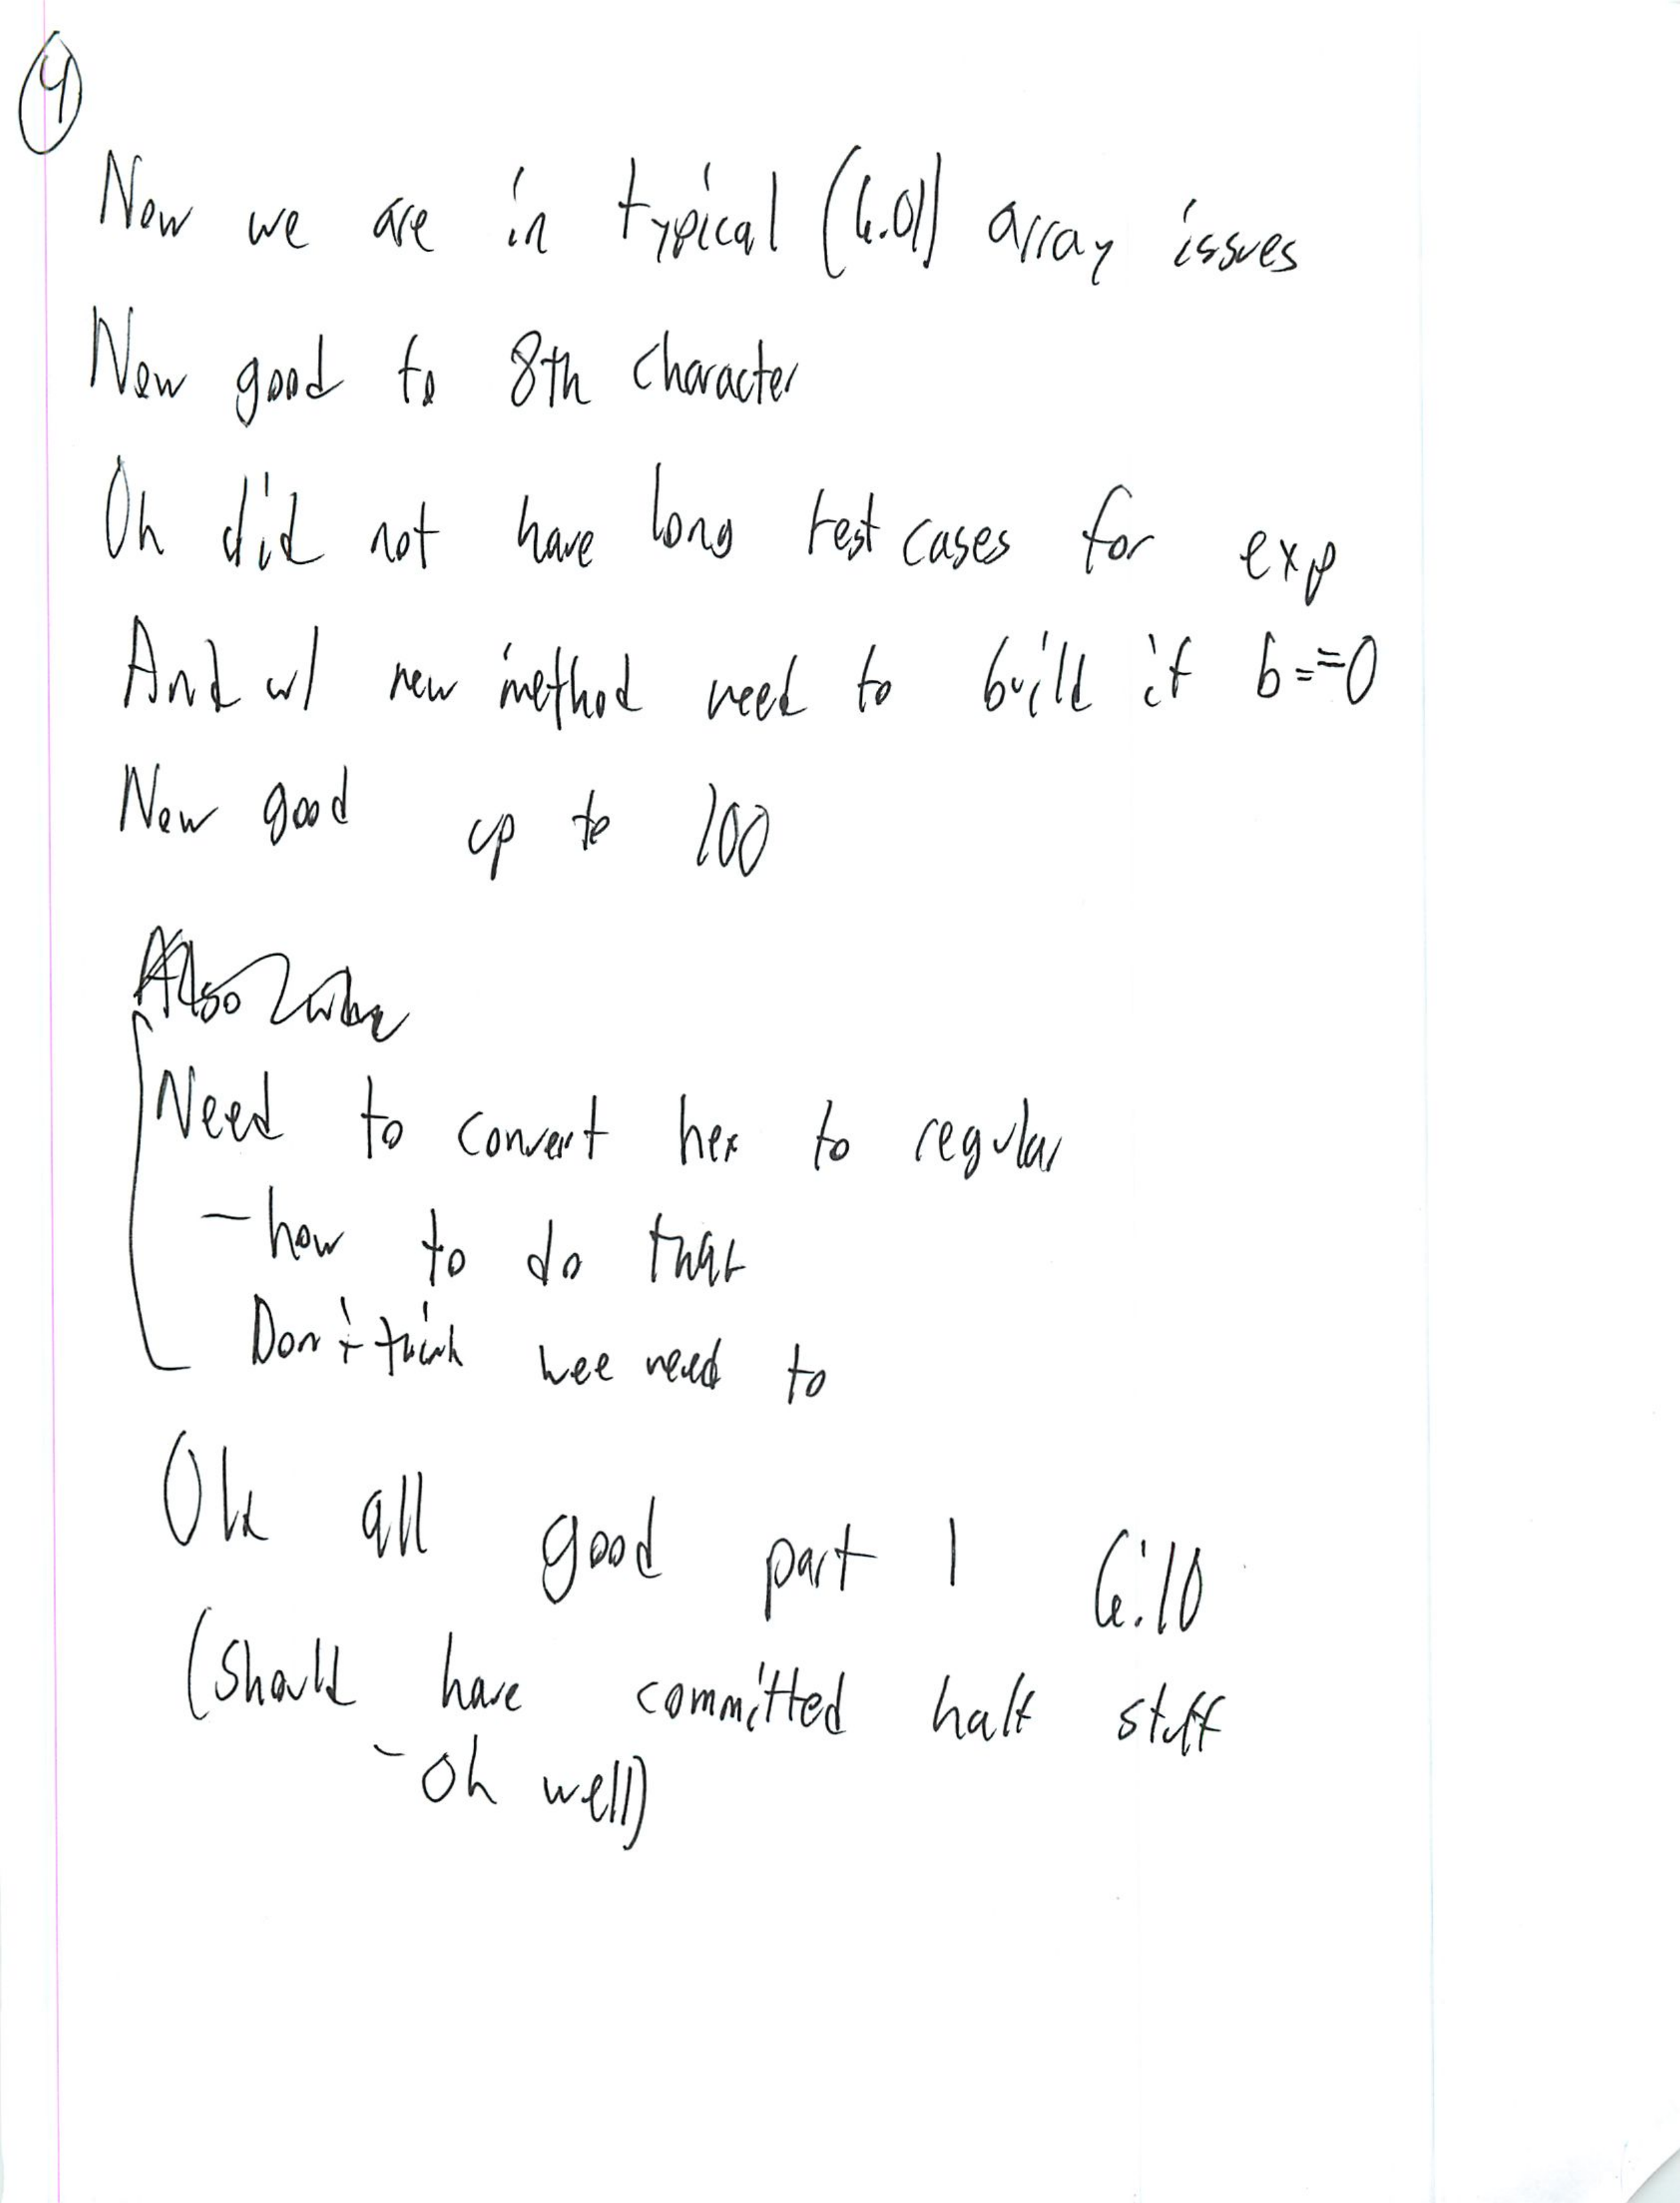 4
Now we are in typical (6.01) array issues
Now good to 8th character
Oh did not have long test cases for exp
And w/ new method need to build if b==0
Now good up to 100
Also
Need to convert hex to regular
- how to do that
Don't think wee need to
Ok all good part 1 6:10
(should have committed half stuff
- oh well)